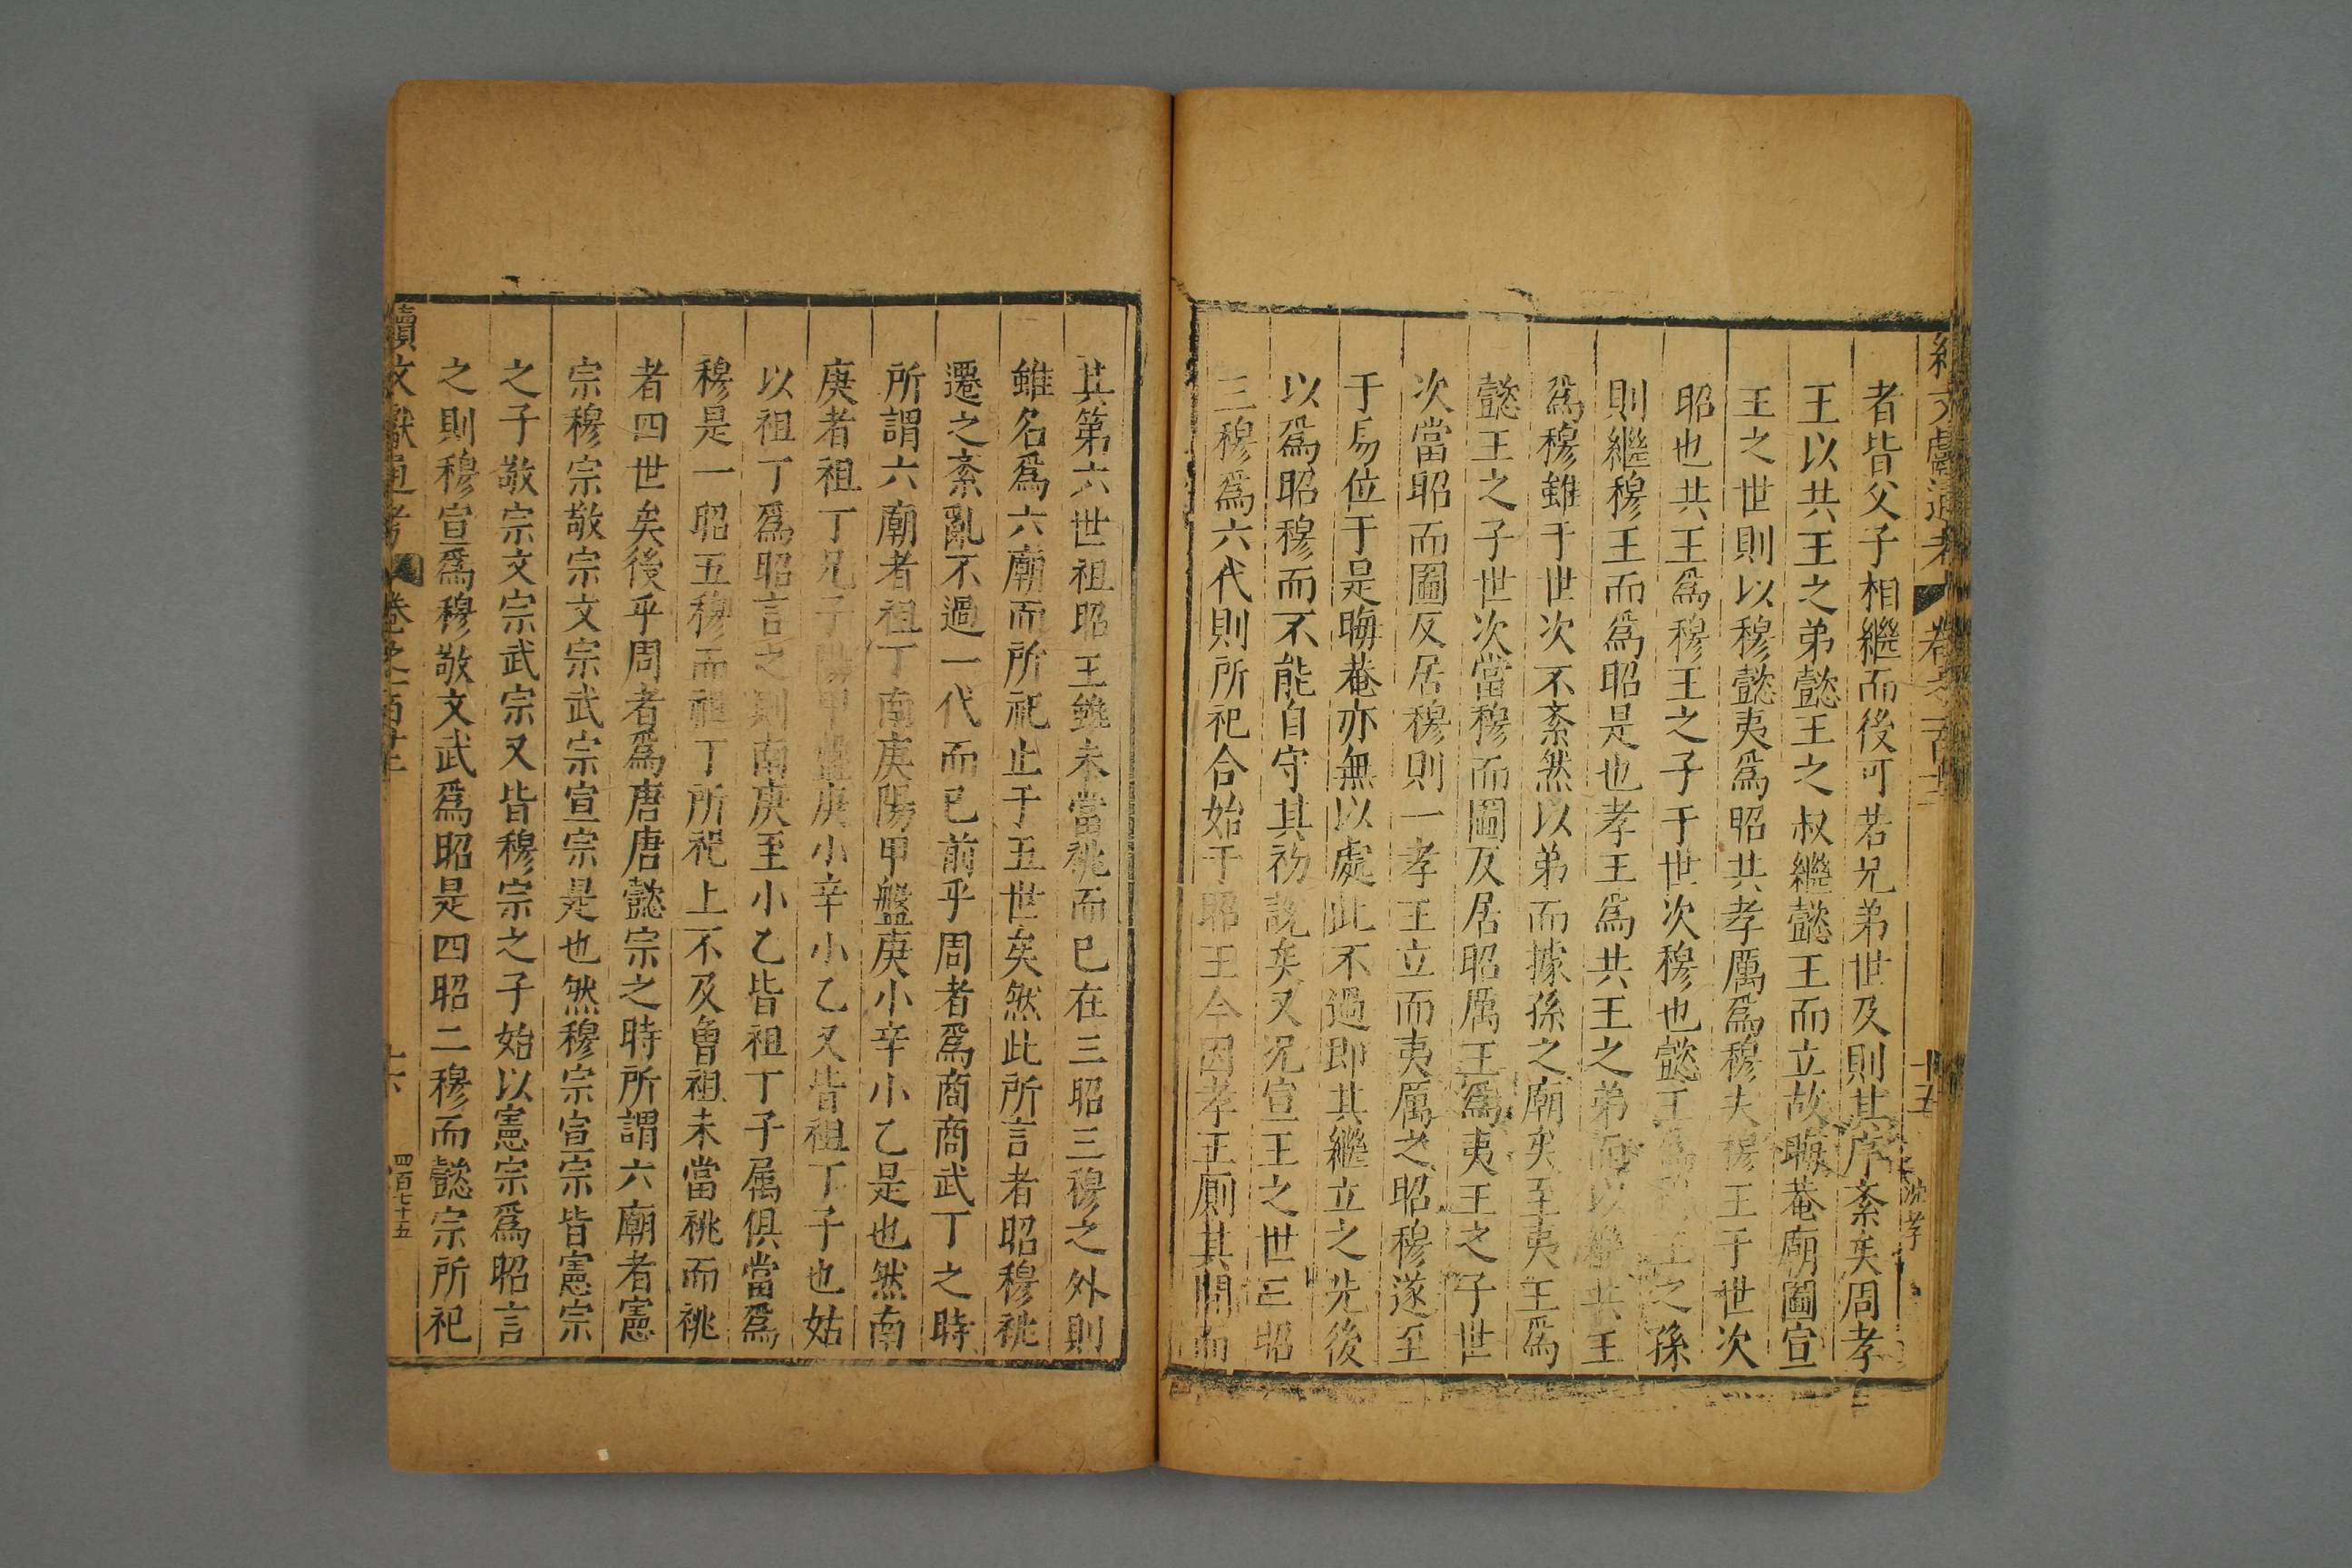 續文獻通考 卷之一百十二 十五 沈孝
者皆父子相繼而後可若兄弟世及則其序紊矣周孝
王以共王之弟懿王之叔繼懿王而立故晦菴廟圖宣
王之世則以穆懿夷爲昭共孝厲爲穆夫穆王于世次
昭也共王爲穆王之子于世次穆也懿王爲穆王之孫
則繼穆王而爲昭是也孝王爲共王之弟而以繼共王
爲穆雖于世次不紊然以弟而據孫之廟矣至夷王爲
懿王之子世次當穆而圖反居昭厲王爲夷王之子世
次當昭而圖反居穆則一孝王立而夷厲之昭穆遂至
于易位于是晦菴亦無以處此不過即其繼立之先後
以爲昭穆而不能自守其初說矣又况宣王之世三昭
三穆爲六代則所祀合始于昭王今因孝王厠其間而
其第六世祖昭王雖未當祧而已在三昭三穆之外則
雖名爲六廟而所祀止于五世矣然此所言者昭穆祧
遷之紊亂不過一代而已前乎周者爲商商武丁之時
所謂六廟者祖丁南庚陽甲盤庚小辛小乙是也然南
庚者祖丁兄子陽甲盤庚小辛小乙又皆祖丁子也姑
以祖丁爲昭言之則南庚至小乙皆祖丁子属俱當爲
穆是一昭五穆而祖丁所祀上不及曾祖未當祧而祧
者四世矣後乎周者爲唐唐懿宗之時所謂六廟者憲
宗穆宗敬宗文宗武宗宣宗是也然穆宗宣宗皆憲宗
之子敬宗文宗武宗又皆穆宗之子始以憲宗爲昭言
之則穆宣爲穆敬文武爲昭是四昭二穆而懿宗所祀
續文獻通考 卷之一百十二 十六 四百七十五